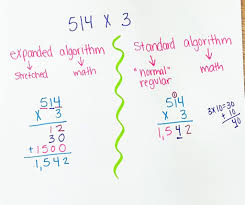 514 x 3
expanded algorithm
stretched
math
514
x 3
12
30
+1500
1,542
standard algorithm
"normal"
regular
math
1
514
x 3
1,542
3x10=30
+ 10
40